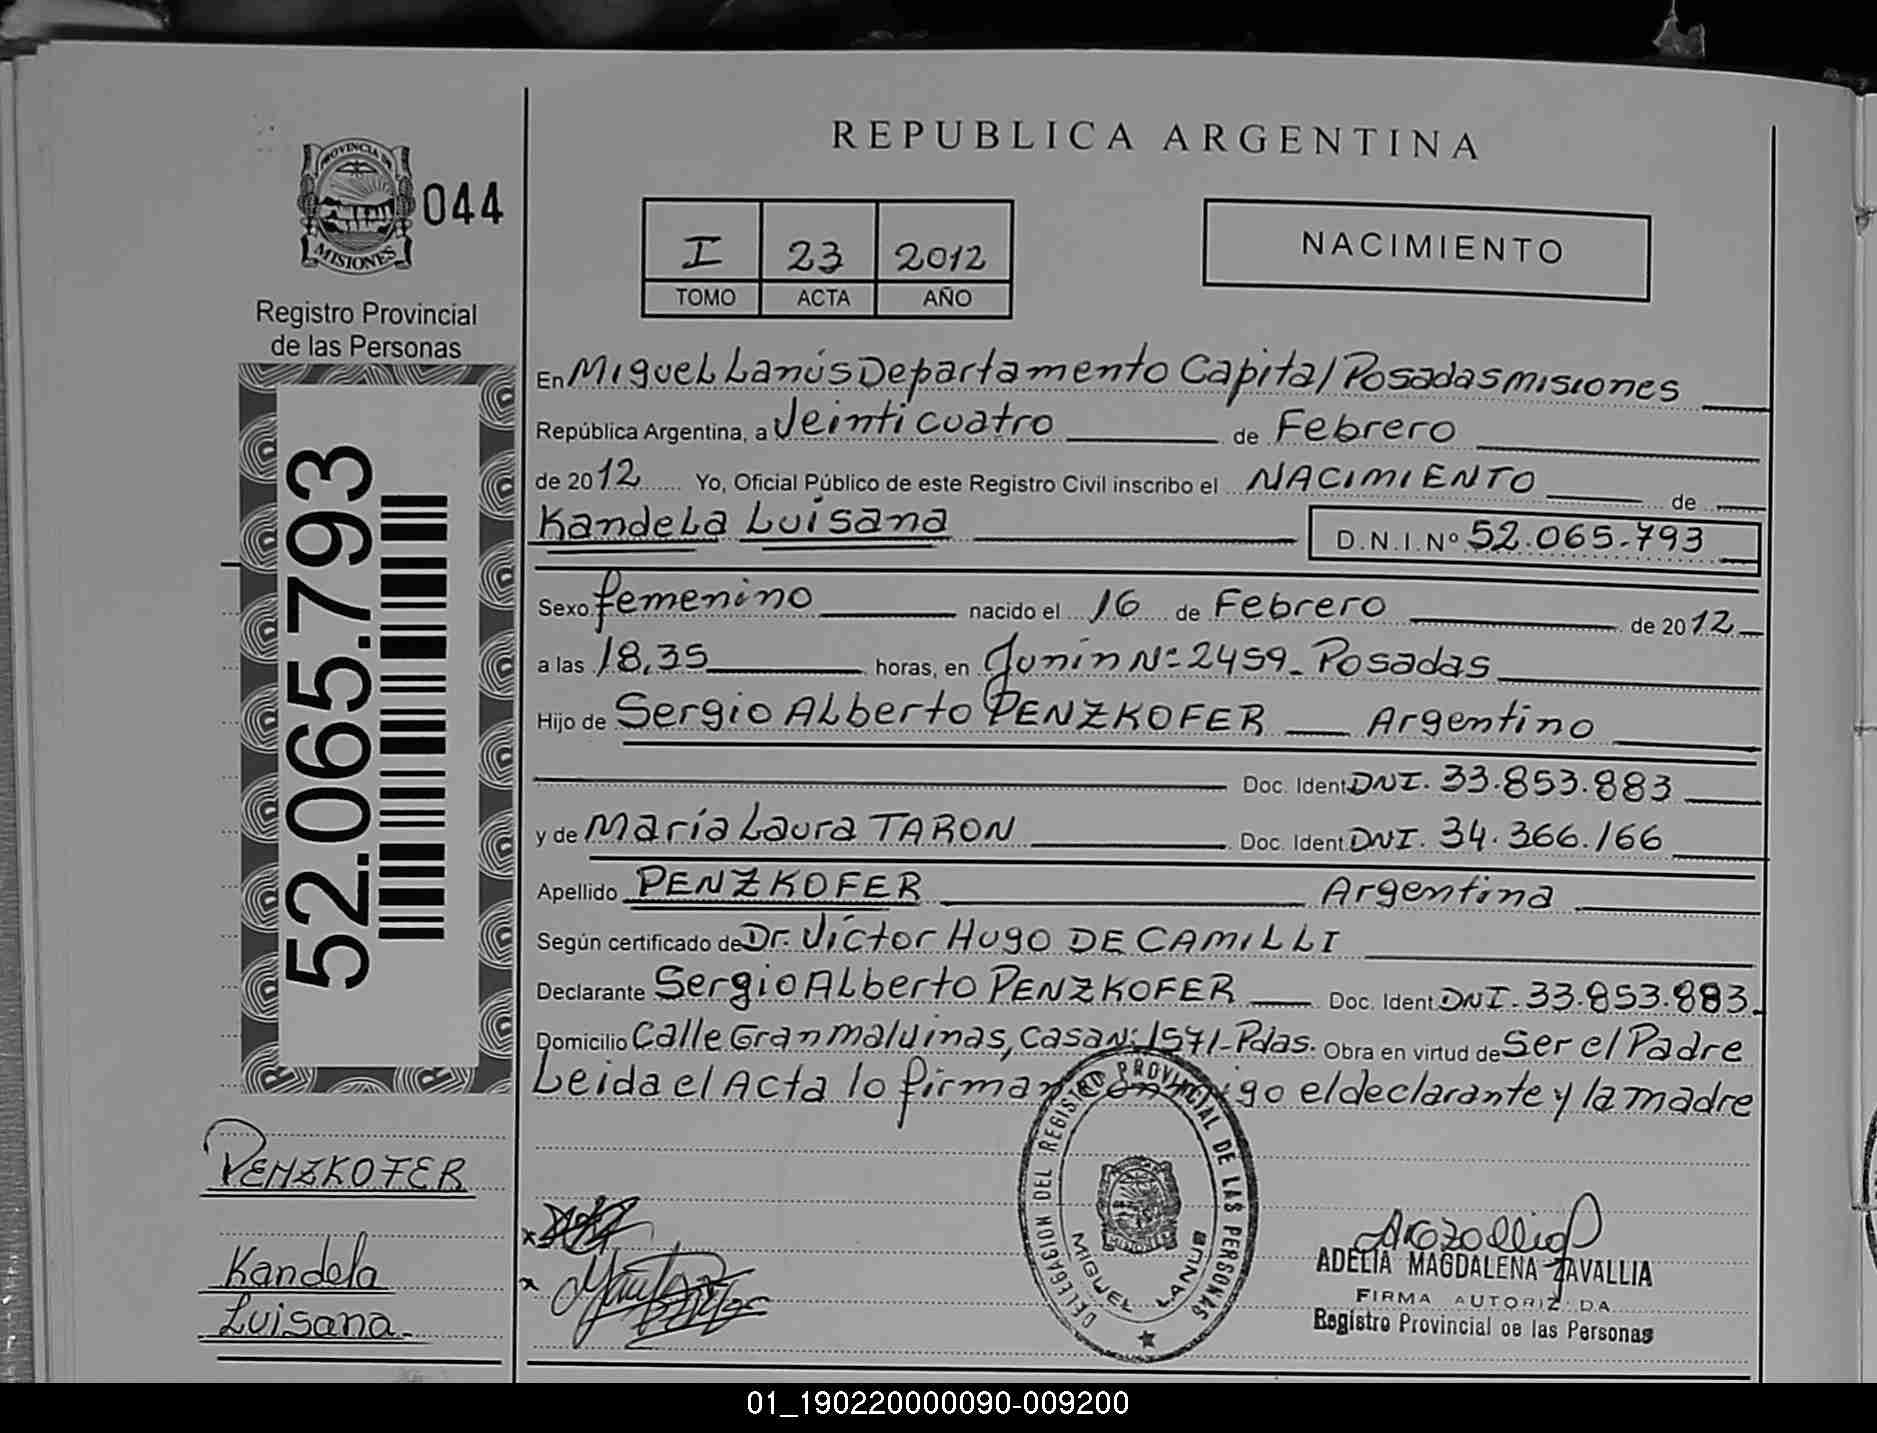 REPUBLICA ARGENTINA
PROVINCIA DE
MISIONES
044
Registro Provincial
de las Personas
I 23 2012
TOMO ACTA AÑO
NACIMIENTO
52.065.793
En Miguel Lanús Departamento Capital Posadas misiones
República Argentina, a Veinticuatro de Febrero
de 2012 Yo, Oficial Público de este Registro Civil inscribo el NACIMIENTO de
Kandela Luisana D.N.I.Nº 52.065.793
Sexo femenino nacido el 16 de Febrero de 2012
a las 18,35 horas, en Junín Nº 2459_ Posadas
Hijo de Sergio Alberto PENZKOFER Argentino
Doc. Ident. DNI. 33.853.883
y de María Laura TARON Doc. Ident. DNI. 34.366.166
Apellido PENZKOFER Argentina
Según certificado de Dr. Víctor Hugo DE CAMILLI
Declarante Sergio Alberto PENZKOFER Doc. Ident. DNI. 33.853.883.
Domicilio Calle Gran malvinas, casa Nº 1571-Pdas. Obra en virtud de Ser el Padre
Leida el Acta lo firman conmigo el declarante y la madre
PENZKOFER
Kandela
Luisana
DELEGACION DEL REGISTRO PROVINCIAL DE LAS PERSONAS
MIGUEL LANUS
ADELIA MAGDALENA ZAVALLIA
FIRMA AUTORIZADA
Registro Provincial de las Personas
01_190220000090-009200